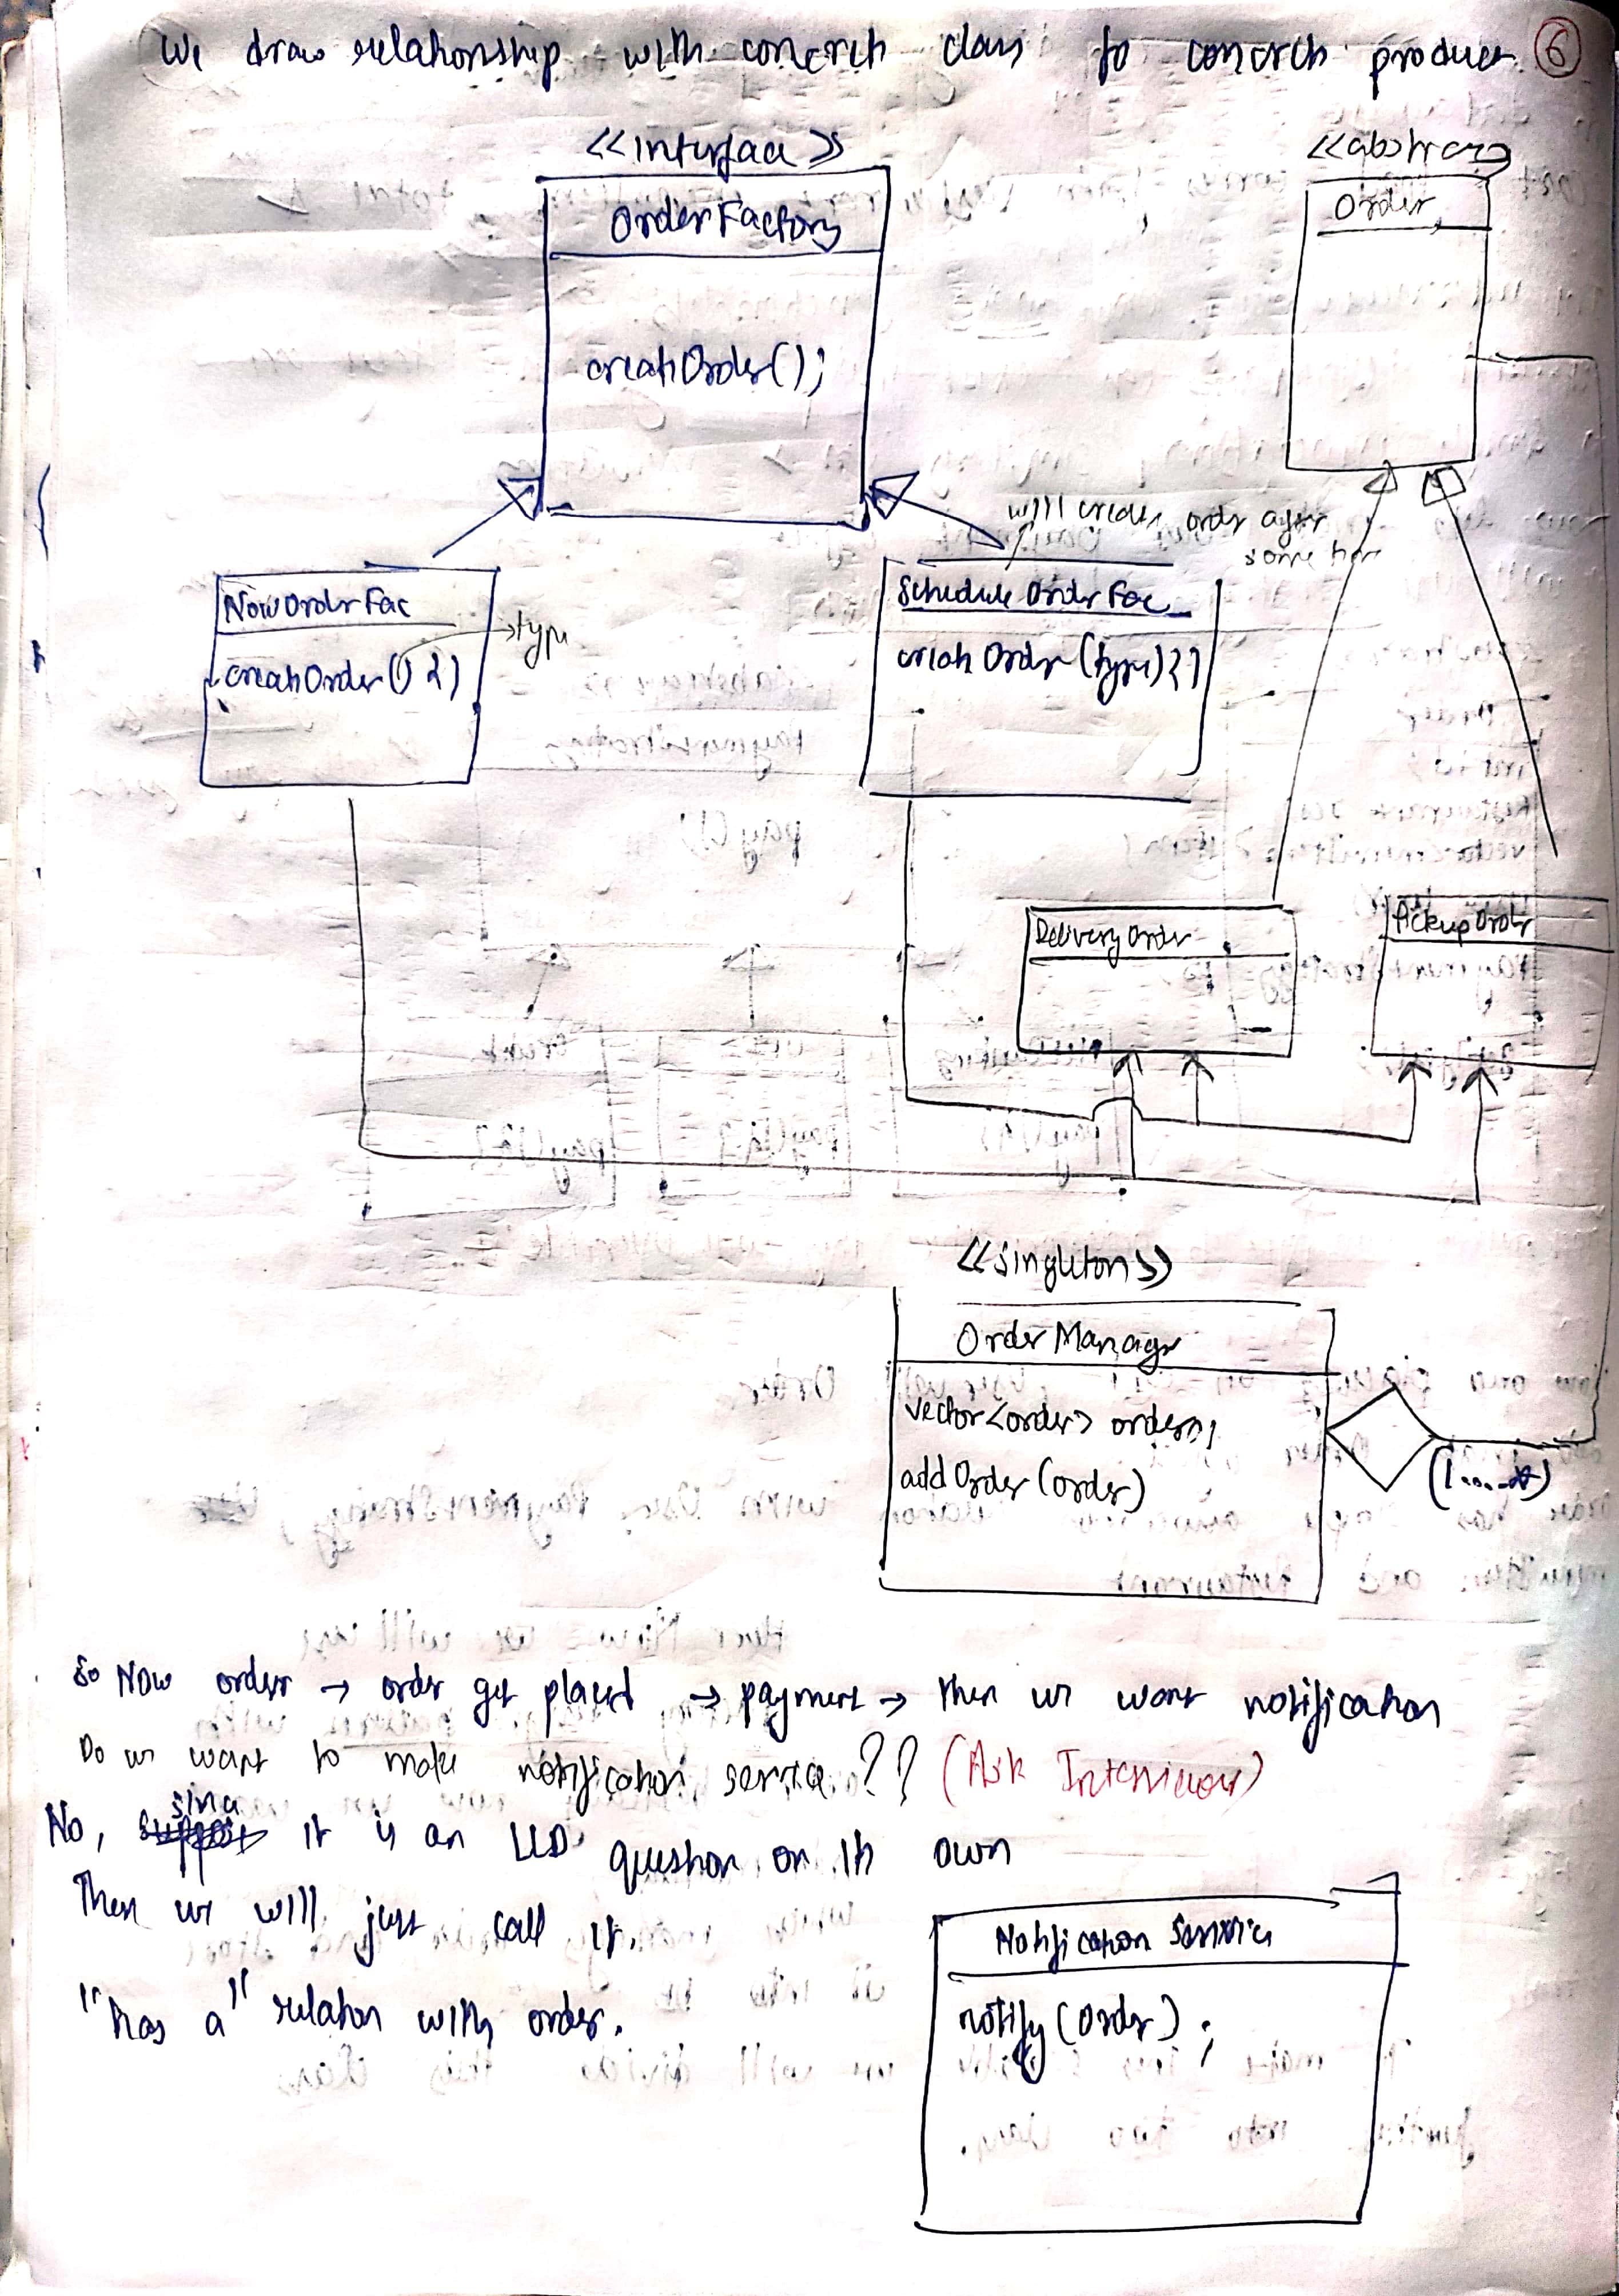 We draw relationship with concrete class to concrete product 6
<<interface>>
<<abstract>>
OrderFactory
Order
createOrder();
will create order after
some time
NowOrderFac
→ type
createOrder() {}
Schedule Order Fac
create Order (type) {}
Delivery Order
Pickup Order
<<singleton>>
Order Manager
vector<order> orders;
addOrder (order)
(1....*)
So Now order → order get placed → payment → then we want notification
Do we want to make notification service ?? (Ask Interviewer)
since
No, it is an LLD question on its own
Then we will just call it.
"has a" relation with order.
Notification Service
notify (Order) ;